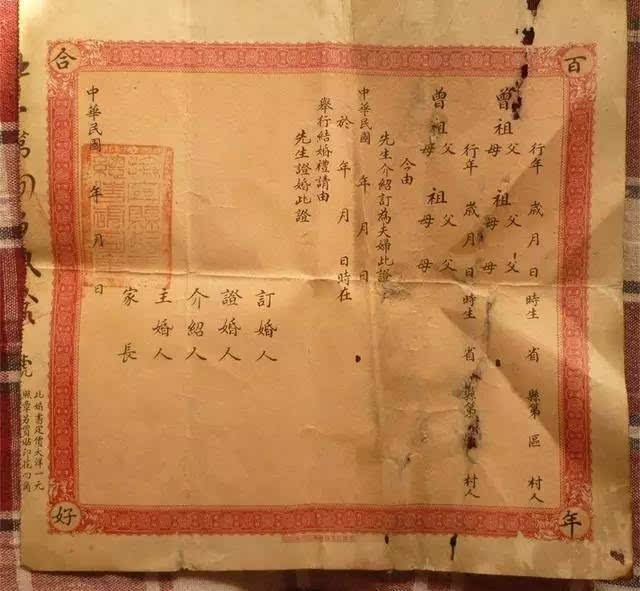 百年好合
行年 歲 月 日 時生 省 縣第 區 村人
曾祖父母 祖父母 父母
行年 歲 月 日 時生 省 縣第 區 村人
曾祖父母 祖父母 父母
今由
先生介紹訂為夫婦此證
中華民國 年 月 日
於 年 月 日 時在
舉行結婚禮請由
先生證婚此證
訂婚人
證婚人
介紹人
主婚人
家長
中華民國 年 月 日
號
此婚書定價大洋一元
章另貼印花四角